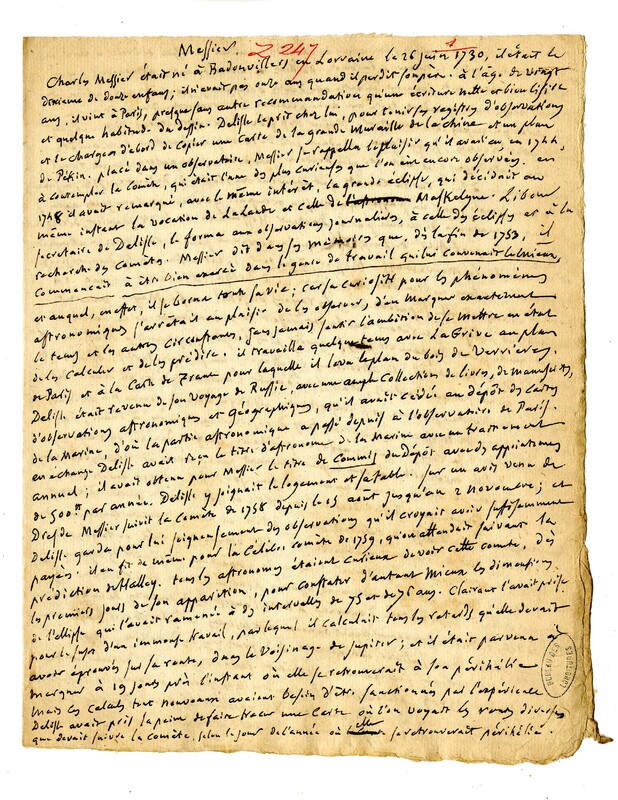 Messier. Z 247 1
Charles Messier était né à Badonvillers en Lorraine le 26 juin 1730, il était le
dixieme de douze enfans; il n'avait pas onze ans quand il perdit son pere. à l'âge de vingt
ans, il vint à Paris, presque sans autre recommandation qu'une écriture nette et bien lisible
et quelque habitude du dessin. Delisle le prit chez lui, pour tenir ses registres d'observations
et le chargea d'abord de copier une Carte de la grande Muraille de la chine et un plan
de Pékin. placé dans un observatoire, Messier se rappella le plaisir qu'il avait eu, en 1744,
à contempler la Comète, qui était l'une des plus curieuses que l'on ait encore observées. en
1748 il avait remarqué, avec le même intérêt, la grande éclipse, qui décida au
même instant la vocation de Lalande et celle de Maskelyne. Libour
secretaire de Delisle, le forma aux observations journalieres, à celle des éclipses et à la
recherche des Comètes. Messier dit dans ses mémoires que, dès la fin de 1753, il
commençait à être bien exercé dans le genre de travail qui lui convenait le mieux,
et auquel, en effet, il se borna toute sa vie; car sa curiosité pour les phénomènes
astronomiques s'arrêtait au plaisir de les observer, d'en marquer exactement
le tems et les autres circonstances, sans jamais sentir l'ambition de se mettre en état
de les calculer et de les prédire. il travailla quelque tems avec La Grive au plan
de Paris et à la Carte de France pour laquelle il leva le plan du bois de Verrières.
Delisle était revenu de son voyage de Russie, avec une ample Collection de livres, de manuscrits,
d'observations astronomiques et Géographiques, qu'il avait cédée au dépôt des Cartes
de la Marine, d'où la partie astronomique a passé depuis à l'observatoire de Paris.
en échange Delisle avait reçu le titre d'astronome de la Marine avec un traitement
annuel; il avait obtenu pour Messier le titre de Commis du dépôt avec des appointemens
de 500tt par année. Delisle y joignait le logement et sa table. sur un avis venu de
Dresde Messier suivit la Comète de 1758 depuis le 15 août jusqu'au 2 novembre; et
Delisle garda pour lui soigneusement des observations qu'il croyait avoir suffisamment
payées. il en fit de même pour la Célèbre comète de 1759, qu'on attendait suivant la
prédiction de Halley. tous les astronomes étaient curieux de voir cette comète, dès
les premiers jours de son apparition, pour constater d'autant mieux les dimensions
de l'ellipse qui l'avait ramenée à des intervalles de 75 et de 76 ans. Clairaut l'avait prise
pour le sujet d'un immense travail, par lequel il calculait tous les retards qu'elle devait
avoir éprouvés sur sa route, dans le voisinage de Jupiter; et il était parvenu à
marquer à 19 jours près l'instant où elle se retrouverait à son périhélie
Mais les calculs tout nouveaux avaient besoin d'être sanctionnés par l'expérience
Delisle avait pris la peine de faire tracer une Carte où l'on voyait les routes diverses
que devait suivre la comète, selon le jour de l'année où elle se retrouverait périhélie.
BUREAU DES LONGITUDES